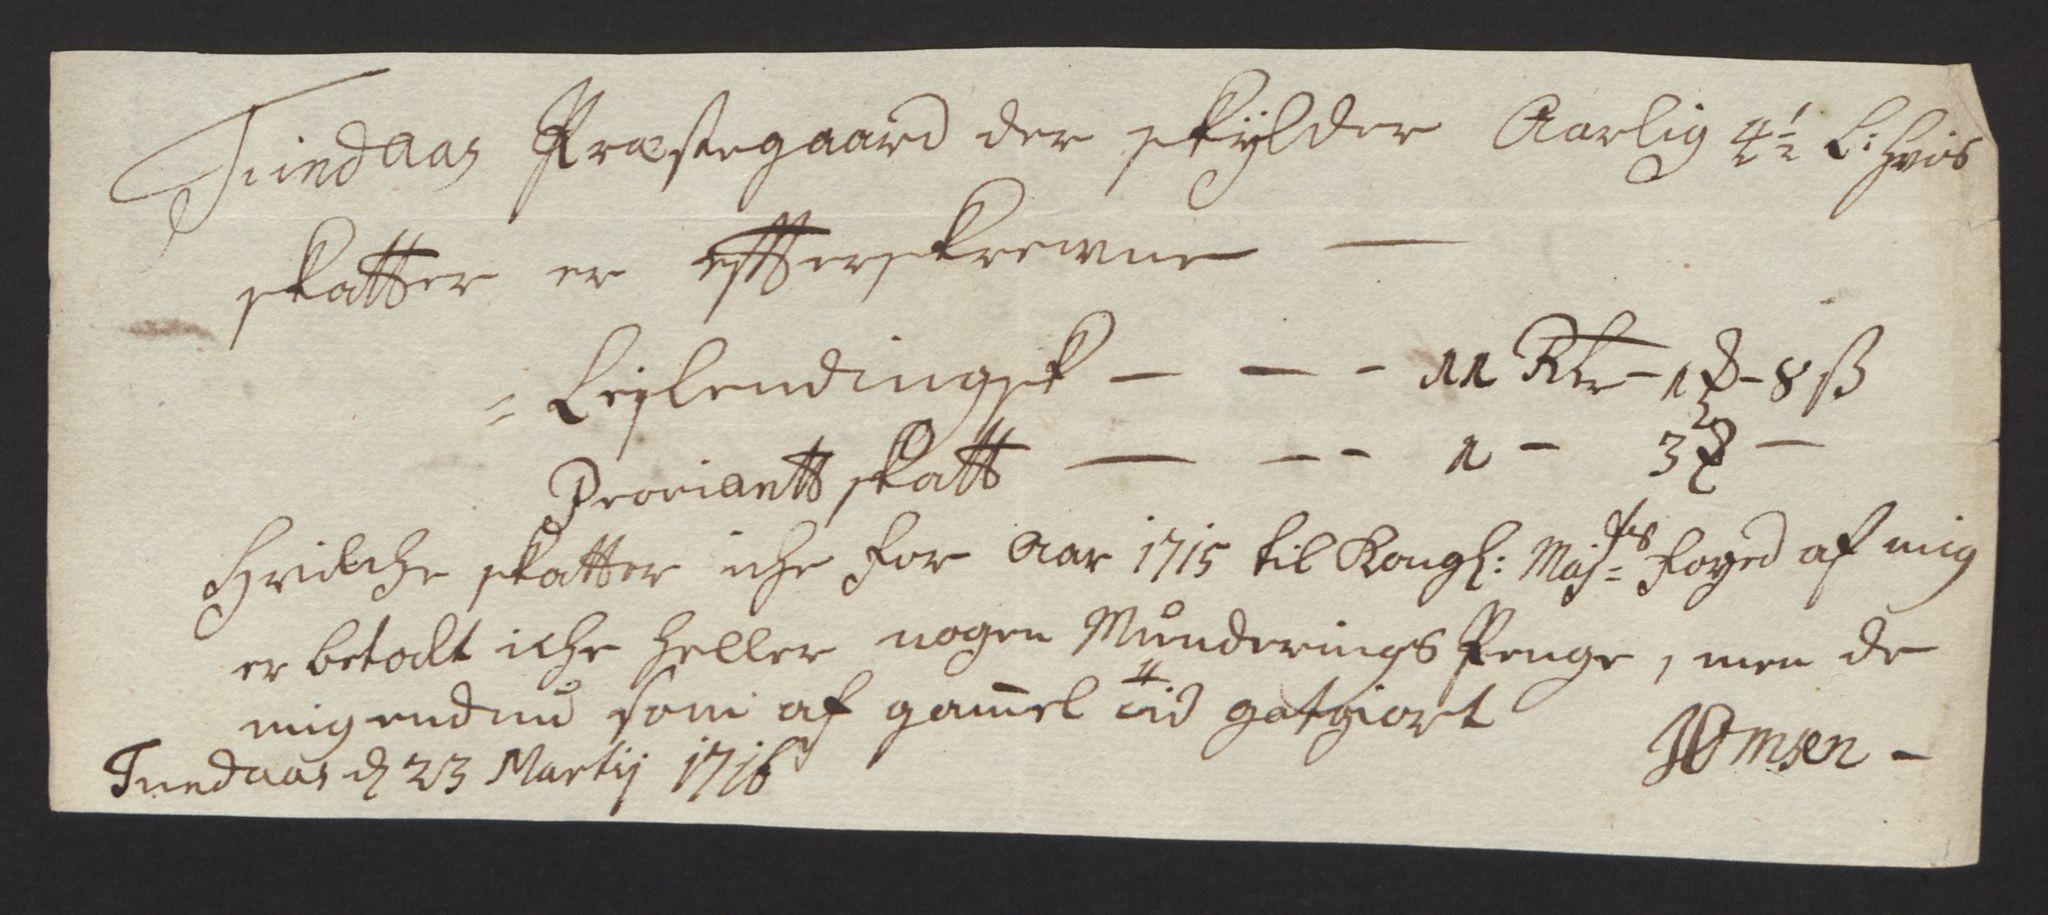 Tiindaas Præstegaard der skylder Aarlig 4½ L: hvis
skatter er effterskrewne —
= Leylendingsk — — - 11 Rdr - 1 - 8 ß
Proviantt skatt — - - 1 - 3 —
Hvilche skatter iche for Aar 1715 til Kongl: Majts foged af mig
er betalt iche heller nogen Munderings Penge, men de
mig endnu som af gammel tid
Tiindaas d 23 Martij 1716